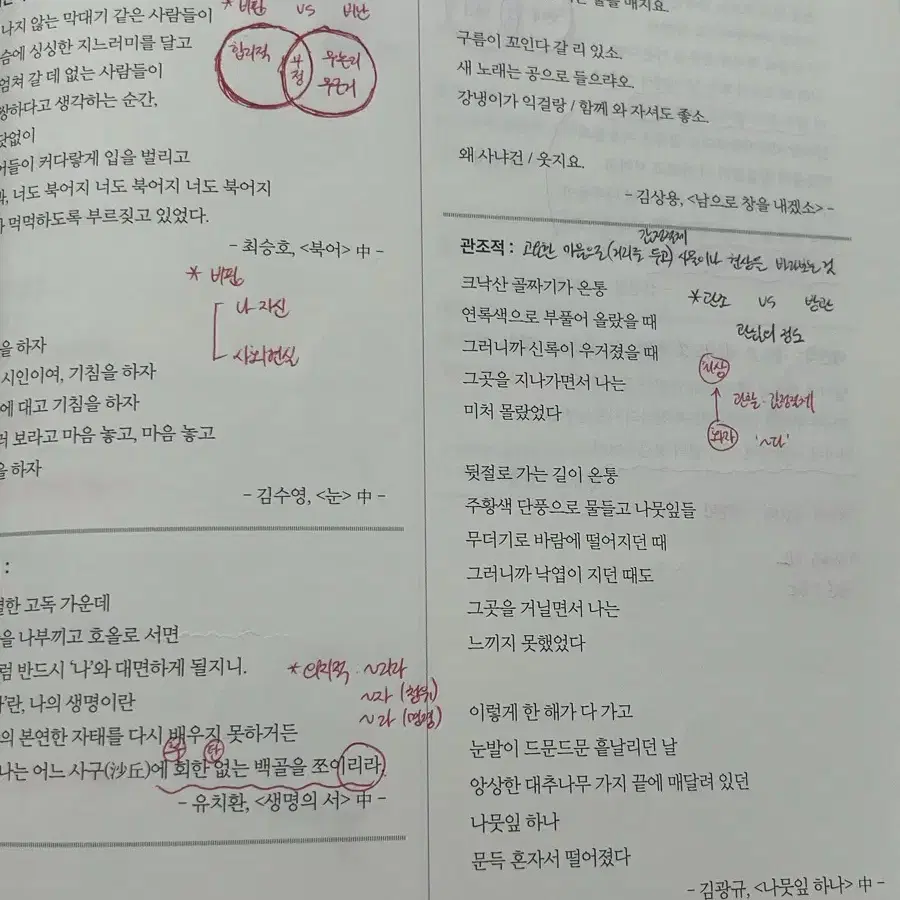 나지 않는 막대기 같은 사람들이
싱싱한 지느러미를 달고
헤엄쳐 갈 데 없는 사람들이
불쌍하다고 생각하는 순간,
느닷없이
북어들이 커다랗게 입을 벌리고
너도 북어지 너도 북어지 너도 북어지
먹먹하도록 부르짖고 있었다.
- 최승호, <북어> 中 -
* 비판 vs 비난
합리적
부정
무논리
무근거
* 비판
나 자신
사회현실
을 하자
시인이여, 기침을 하자
에 대고 기침을 하자
보라고 마음 놓고, 마음 놓고
을 하자
- 김수영, <눈> 中 -
:
열렬한 고독 가운데
을 나부끼고 호올로 서면
럼 반드시 '나'와 대면하게 될지니.
란, 나의 생명이란
의 본연한 자태를 다시 배우지 못하거든
나는 어느 사구(沙丘)에 회한 없는 백골을 쪼이리라.
- 유치환, <생명의 서> 中 -
* 의지적 · ~리라
~자 (청유)
~라 (명령)
을 매지요.
구름이 꼬인다 갈 리 있소.
새 노래는 공으로 들으랴오.
강냉이가 익걸랑 / 함께 와 자셔도 좋소.
왜 사냐건 / 웃지요.
- 김상용, <남으로 창을 내겠소> -
감정절제
관조적 : 고요한 마음으로 (거리를 두고) 사물이나 현상을 바라보는 것
크낙산 골짜기가 온통
연록색으로 부풀어 올랐을 때
그러니까 신록이 우거졌을 때
그곳을 지나가면서 나는
미처 몰랐었다
* 관조 vs 방관
관심의 정도
대상
관찰·감정절제
화자 '~다'
뒷절로 가는 길이 온통
주황색 단풍으로 물들고 나뭇잎들
무더기로 바람에 떨어지던 때
그러니까 낙엽이 지던 때도
그곳을 거닐면서 나는
느끼지 못했었다
이렇게 한 해가 다 가고
눈발이 드문드문 흩날리던 날
앙상한 대추나무 가지 끝에 매달려 있던
나뭇잎 하나
문득 혼자서 떨어졌다
- 김광규, <나뭇잎 하나> 中 -